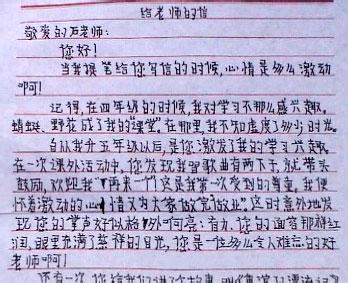 给老师的信
敬爱的石老师:
您好!
当我提笔给您写信的时候,心情是多么激动
啊!
记得,在四年级的时候,我对学习不那么感兴趣。
蜻蜓、野花成了我的"课堂"。在那里,我不知虚度了多少时光。
自从我升五年级以后,是您激发了我的学习兴趣。
在一次课外活动中,您发现我唱歌曲有两下子,就带头
鼓励,欢迎我"再来一个"这是我第一次受到的尊重,我便
怀着激动的心情又为大家做完做业"这时意外地发
现您的掌声好似格外响亮:有力。您的面容那样红
润,眼里充满了慈祥的目光,您是一位多么令人难忘的好
老师啊!
还有一次,您给我们讲了个故事,叫《鲁滨